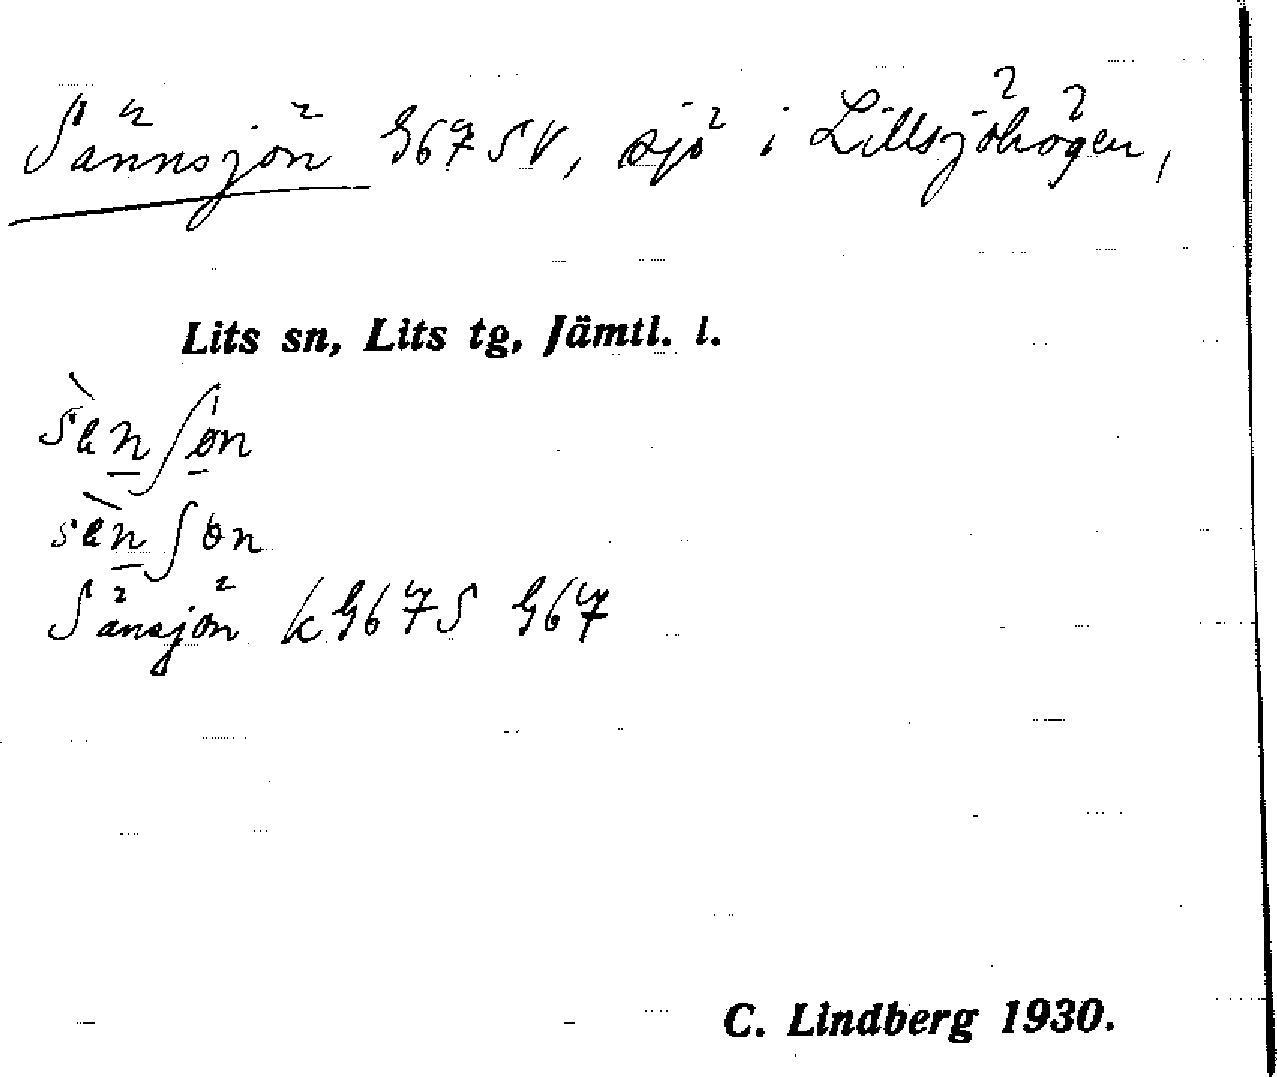 Sännsjön G67SV, sjö i Lillsjöhögen,
Lits sn, Lits tg, Jämtl. l.
sän∫øn
sän∫øn
Sänsjön k G67S G67
C. Lindberg 1930.